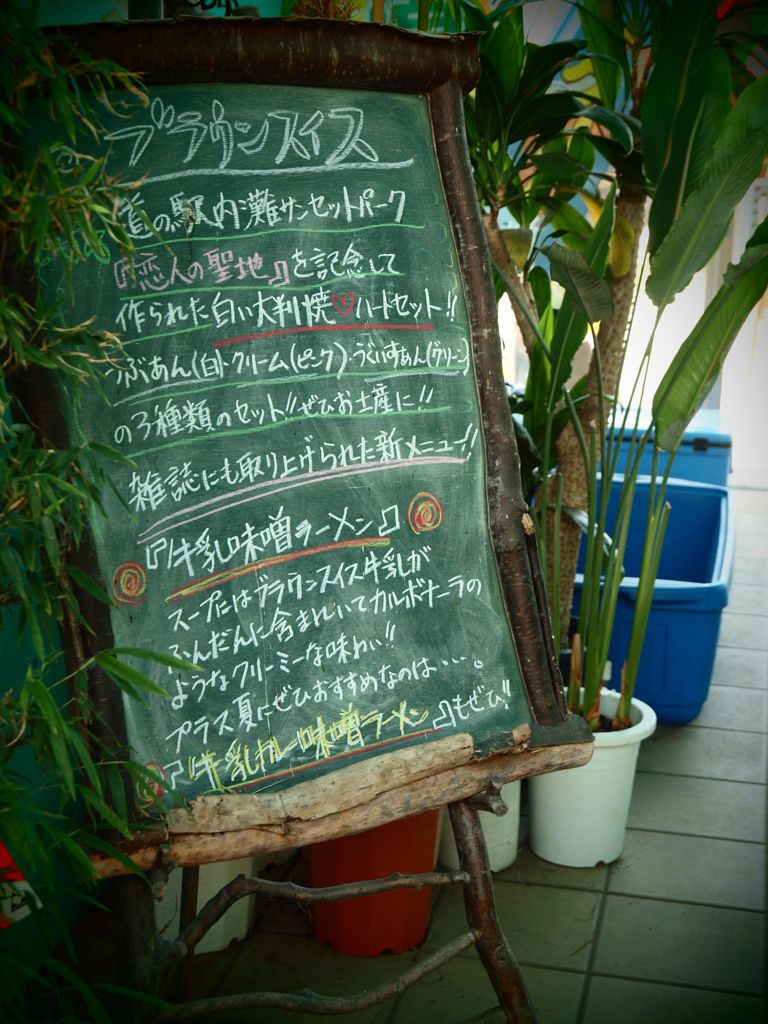 ブラウンスイス
道の駅内灘サンセットパーク
『恋人の聖地』を記念して
作られた白い大判焼♡ハートセット!!
つぶあん(白)・クリーム(ピンク)・うぐいすあん(グリーン)
の3種類のセット!!ぜひお土産に!!
雑誌にも取り上げられた新メニュー!!
『牛乳味噌ラーメン』
スープにはブラウンスイス牛乳が
ふんだんに含まれていてカルボナーラの
ようなクリーミーな味わい!!
プラス夏にぜひおすすめなのは・・・。
『牛乳カレー味噌ラーメン』もぜひ!!